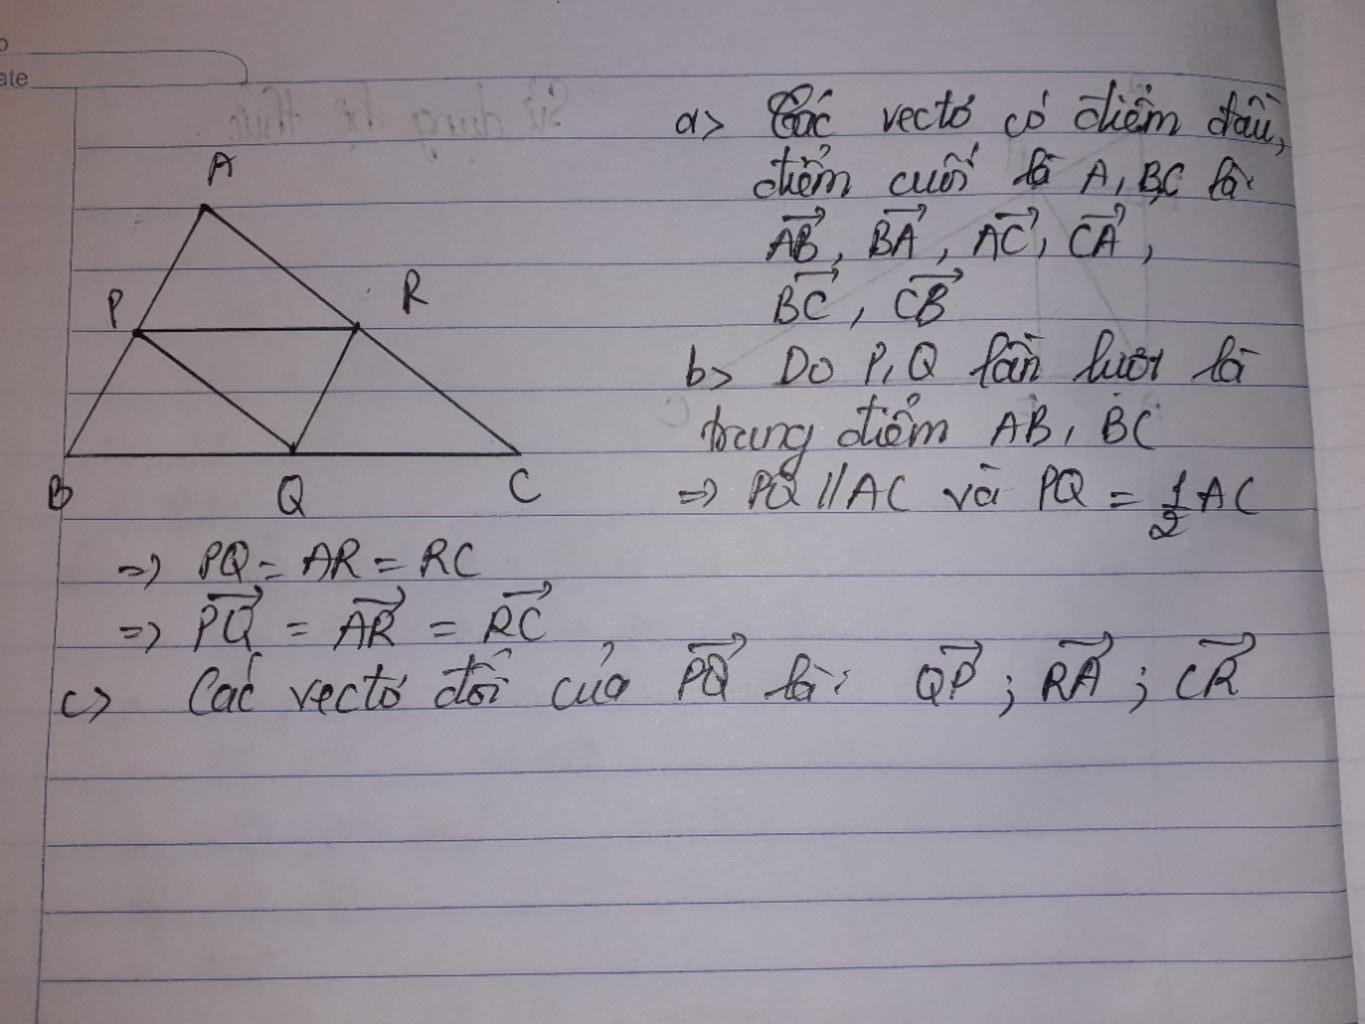 ate
A
P
R
B
Q
C
a> Các vectơ có điểm đầu,
điểm cuối là A, B, C là:
$\overrightarrow{AB}$, $\overrightarrow{BA}$, $\overrightarrow{AC}$, $\overrightarrow{CA}$,
$\overrightarrow{BC}$, $\overrightarrow{CB}$
b> Do P, Q lần lượt là
trung điểm AB, BC
=> PQ // AC và PQ = $\frac{1}{2}$ AC
=> PQ = AR = RC
=> $\overrightarrow{PQ}$ = $\overrightarrow{AR}$ = $\overrightarrow{RC}$
c> Các vectơ đối của $\overrightarrow{PQ}$ là: $\overrightarrow{QP}$ ; $\overrightarrow{RA}$ ; $\overrightarrow{CR}$